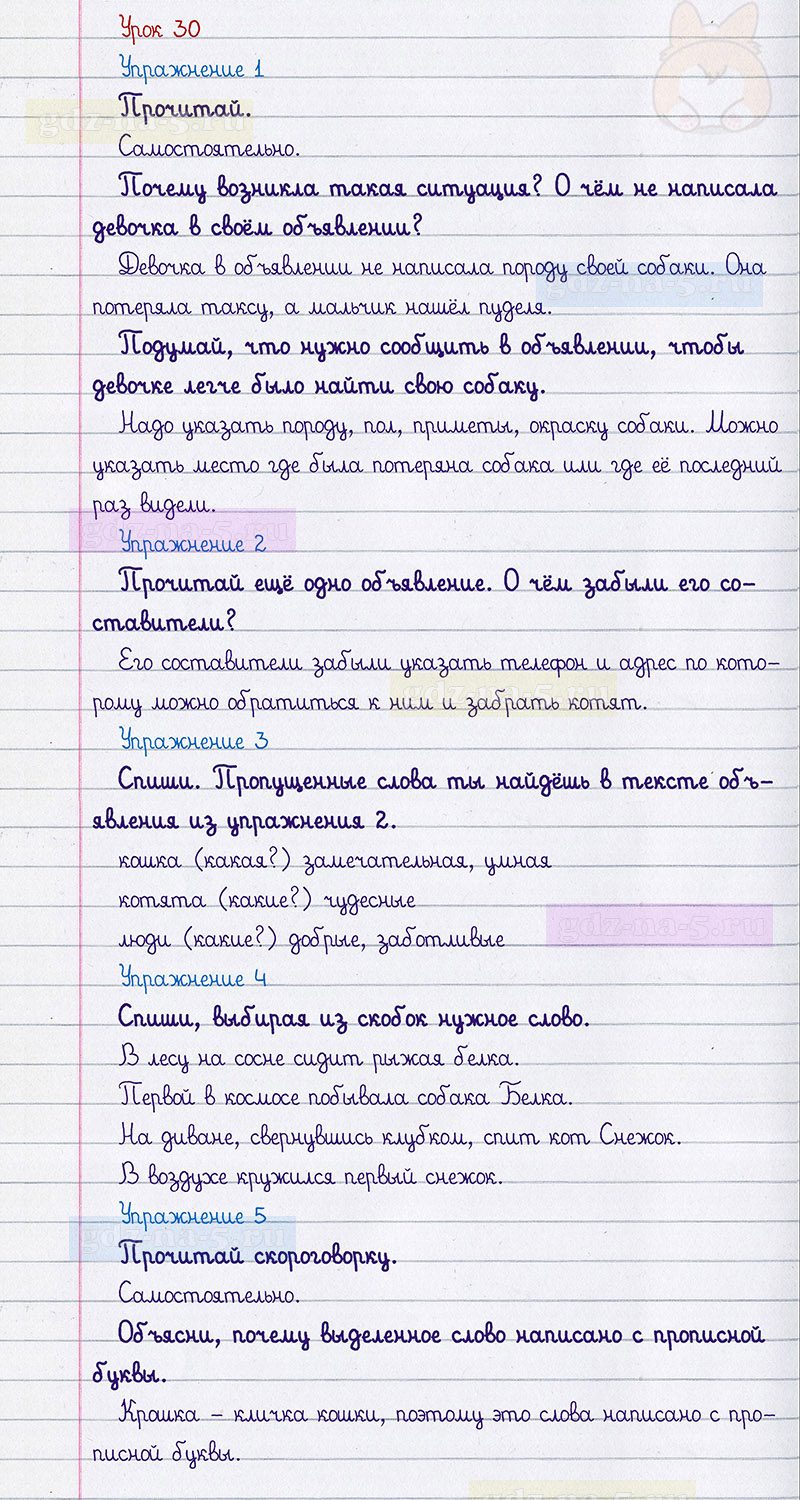 Урок 30
Упражнение 1
Прочитай.
Самостоятельно.
Почему возникла такая ситуация? О чём не написала
девочка в своём объявлении?
Девочка в объявлении не написала породу своей собаки. Она
потеряла таксу, а мальчик нашёл пуделя.
Подумай, что нужно сообщить в объявлении, чтобы
девочке легче было найти свою собаку.
Надо указать породу, пол, приметы, окраску собаки. Можно
указать место где была потеряна собака или где её последний
раз видели.
Упражнение 2
Прочитай ещё одно объявление. О чём забыли его со-
ставители?
Его составители забыли указать телефон и адрес по кото-
рому можно обратиться к ним и забрать котят.
Упражнение 3
Спиши. Пропущенные слова ты найдёшь в тексте объ-
явления из упражнения 2.
кошка (какая?) замечательная, умная
котята (какие?) чудесные
люди (какие?) добрые, заботливые
Упражнение 4
Спиши, выбирая из скобок нужное слово.
В лесу на сосне сидит рыжая белка.
Первой в космосе побывала собака Белка.
На диване, свернувшись клубком, спит кот Снежок.
В воздухе кружился первый снежок.
Упражнение 5
Прочитай скороговорку.
Самостоятельно.
Объясни, почему выделенное слово написано с прописной
буквы.
Крошка – кличка кошки, поэтому это слова написано с про-
писной буквы.
gdz-na-5.ru
gdz-na-5.ru
gdz-na-5.ru
gdz-na-5.ru
gdz-na-5.ru
gdz-na-5.ru